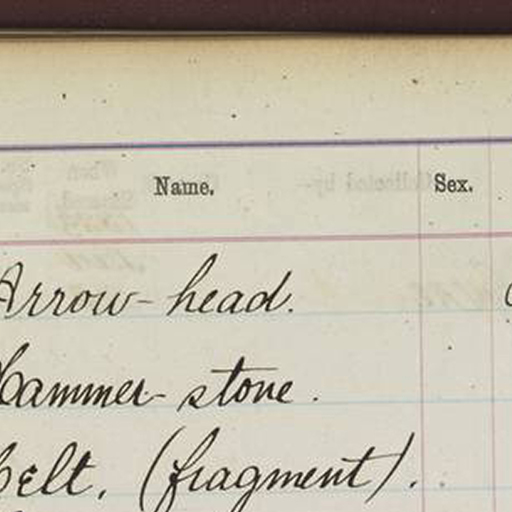 Name. Sex.
Arrow-head.
Hammer-stone.
Celt. (fragment).